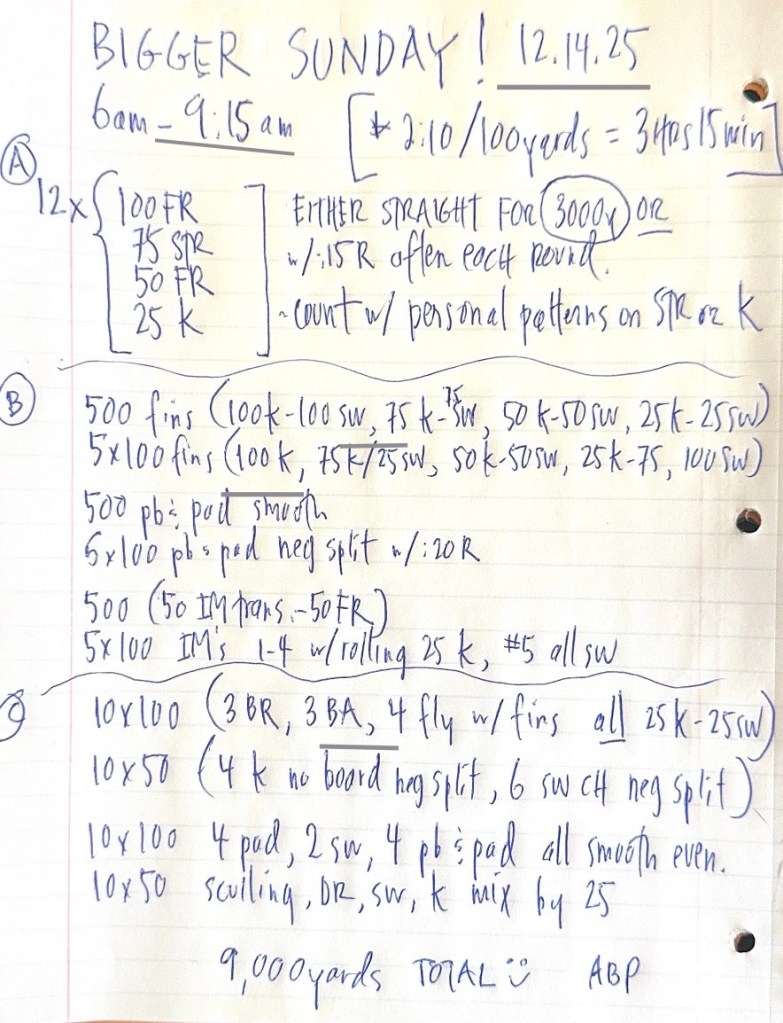 BIGGER SUNDAY! 12.14.25
6am - 9:15am [* 2:10/100yards = 3Hrs15min]
A
12x { 100 FR ] EITHER STRAIGHT FOR 3000y OR
75 STR w/:15R after each round.
50 FR
25 K - count w/ personal patterns on STR or K
B
500 fins (100k-100sw, 75k-75sw, 50k-50sw, 25k-25sw)
5x100 fins (100k, 75k/25sw, 50k-50sw, 25k-75, 100sw)
500 pb & pad smooth
5x100 pb & pad neg split w/:20R
500 (50 IM trans.-50FR)
5x100 IM's 1-4 w/rolling 25 k, #5 all sw
C
10x100 (3 BR, 3 BA, 4 fly w/ fins all 25k-25sw)
10x50 (4 k no board neg split, 6 sw CH neg split)
10x100 4 pad, 2 sw, 4 pb & pad all smooth even.
10x50 sculling, DR, sw, k mix by 25
9,000yards TOTAL ABP